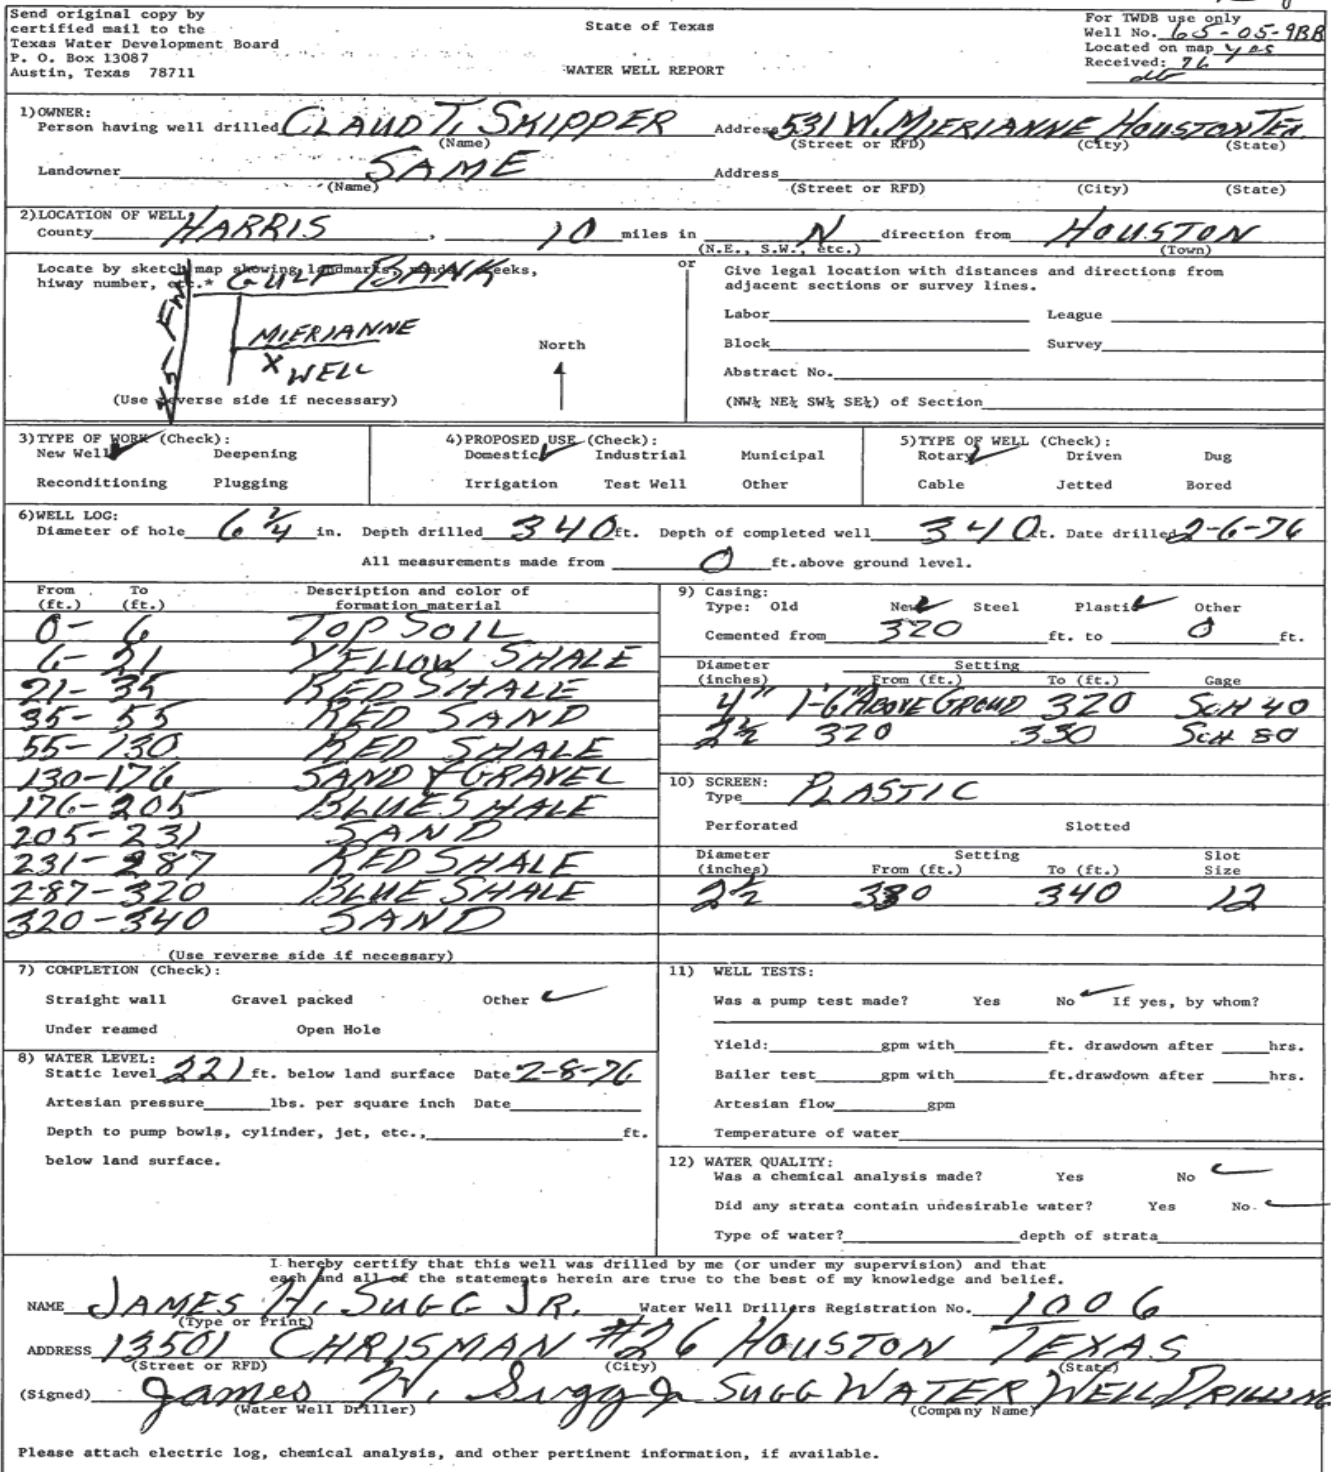 Send original copy by
certified mail to the
Texas Water Development Board
P. O. Box 13087
Austin, Texas 78711
State of Texas
WATER WELL REPORT
For TWDB use only
Well No. 65-05-9BB
Located on map yes
Received: 76
1)OWNER:
Person having well drilled CLAUD T. SKIPPER Address 531 W. MIERIANNE HOUSTON TEX.
(Name) (Street or RFD) (City) (State)
Landowner SAME Address
(Name) (Street or RFD) (City) (State)
2)LOCATION OF WELL:
County HARRIS, 10 miles in N direction from HOUSTON
(N.E., S.W., etc.) (Town)
Locate by sketch map showing landmarks, roads, creeks,
hiway number, etc.* GULF BANK
MIERIANNE
X WELL
North
(Use reverse side if necessary)
or
Give legal location with distances and directions from
adjacent sections or survey lines.
Labor League
Block Survey
Abstract No.
(NW¼ NE¼ SW¼ SE¼) of Section
3)TYPE OF WORK (Check):
New Well ✓ Deepening
Reconditioning Plugging
4)PROPOSED USE (Check):
Domestic ✓ Industrial Municipal
Irrigation Test Well Other
5)TYPE OF WELL (Check):
Rotary ✓ Driven Dug
Cable Jetted Bored
6)WELL LOG:
Diameter of hole 6 in. Depth drilled 340 ft. Depth of completed well 340 ft. Date drilled 2-6-76
All measurements made from 0 ft.above ground level.
From To Description and color of
(ft.) (ft.) formation material
0- 6 TOP SOIL
6-21 YELLOW SHALE
21-35 RED SHALE
35-55 RED SAND
55-130 RED SHALE
130-176 SAND & GRAVEL
176-205 BLUE SHALE
205-231 SAND
231-287 RED SHALE
287-320 BLUE SHALE
320-340 SAND
(Use reverse side if necessary)
9) Casing:
Type: Old New ✓ Steel Plastic ✓ Other
Cemented from 320 ft. to 0 ft.
Diameter Setting
(inches) From (ft.) To (ft.) Gage
4" 1'-6" ABOVE GROUD 320 SCH 40
2½ 320 330 SCH 80
10) SCREEN:
Type PLASTIC
Perforated Slotted
Diameter Setting Slot
(inches) From (ft.) To (ft.) Size
2½ 330 340 12
7) COMPLETION (Check):
Straight wall Gravel packed Other ✓
Under reamed Open Hole
8) WATER LEVEL:
Static level 221 ft. below land surface Date 2-8-76
Artesian pressure lbs. per square inch Date
Depth to pump bowls, cylinder, jet, etc., ft.
below land surface.
11) WELL TESTS:
Was a pump test made? Yes No ✓ If yes, by whom?
Yield: gpm with ft. drawdown after hrs.
Bailer test gpm with ft.drawdown after hrs.
Artesian flow gpm
Temperature of water
12) WATER QUALITY:
Was a chemical analysis made? Yes No ✓
Did any strata contain undesirable water? Yes No ✓
Type of water? depth of strata
I hereby certify that this well was drilled by me (or under my supervision) and that
each and all of the statements herein are true to the best of my knowledge and belief.
NAME JAMES H. SUGG JR. Water Well Drillers Registration No. 1006
(Type or Print)
ADDRESS 13501 CHRISMAN #26 HOUSTON TEXAS
(Street or RFD) (City) (State)
(Signed) James H. Sugg Jr SUGG WATER WELL DRILLING
(Water Well Driller) (Company Name)
Please attach electric log, chemical analysis, and other pertinent information, if available.